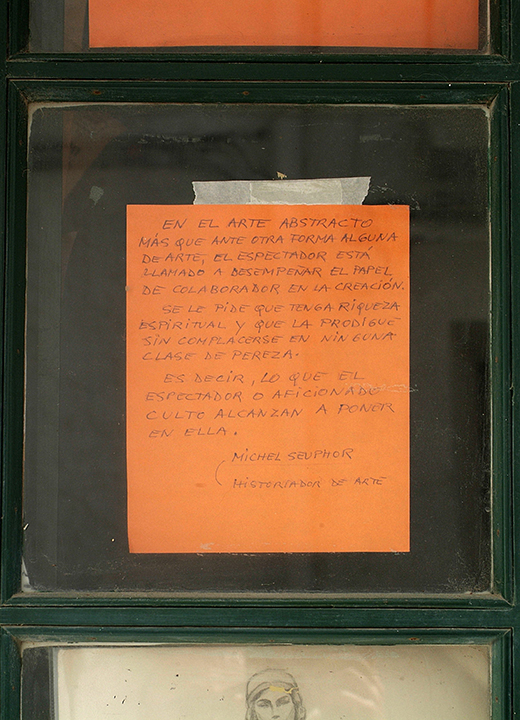 EN EL ARTE ABSTRACTO
MÁS QUE ANTE OTRA FORMA ALGUNA
DE ARTE, EL ESPECTADOR ESTÁ
LLAMADO A DESEMPEÑAR EL PAPEL
DE COLABORADOR EN LA CREACIÓN.
SE LE PIDE QUE TENGA RIQUEZA
ESPIRITUAL Y QUE LA PRODIGUE
SIN COMPLACERSE EN NINGUNA
CLASE DE PEREZA.
ES DECIR, LO QUE EL
ESPECTADOR O AFICIONADO
CULTO ALCANZAN A PONER
EN ELLA.
MICHEL SEUPHOR
HISTORIADOR DE ARTE